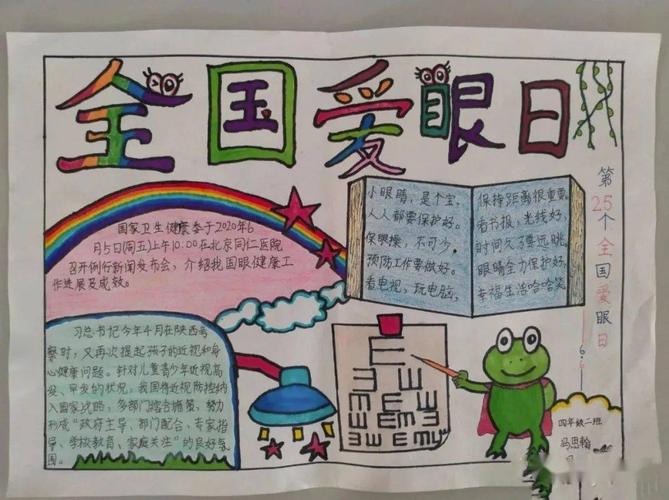 全国爱眼日
国家卫生健康委于2020年6
月5日(周五)上午10:00在北京同仁医院
召开例行新闻发布会，介绍我国眼健康工
作进展及成效。
小眼睛，是个宝，
人人都要保护好。
保眼操，不可少，
预防工作要做好。
看电视，玩电脑，
保持距离很重要。
看书报，光线好，
时间久了要远眺，
眼睛全力保护好，
幸福生活哈哈笑
第25个全国爱眼日
6.6
习总书记今年4月在陕西考
察时，又再次提起孩子的近视和身
心健康问题。针对儿童青少年近视高
发、早发的状况，我国将近视防控纳
入国家战略，多部门综合施策，努力
形成“政府主导、部门配合、专家指
导、学校教育、家庭关注”的良好氛
围。
E
E m
E m
E m
四年级二班
冯思翰